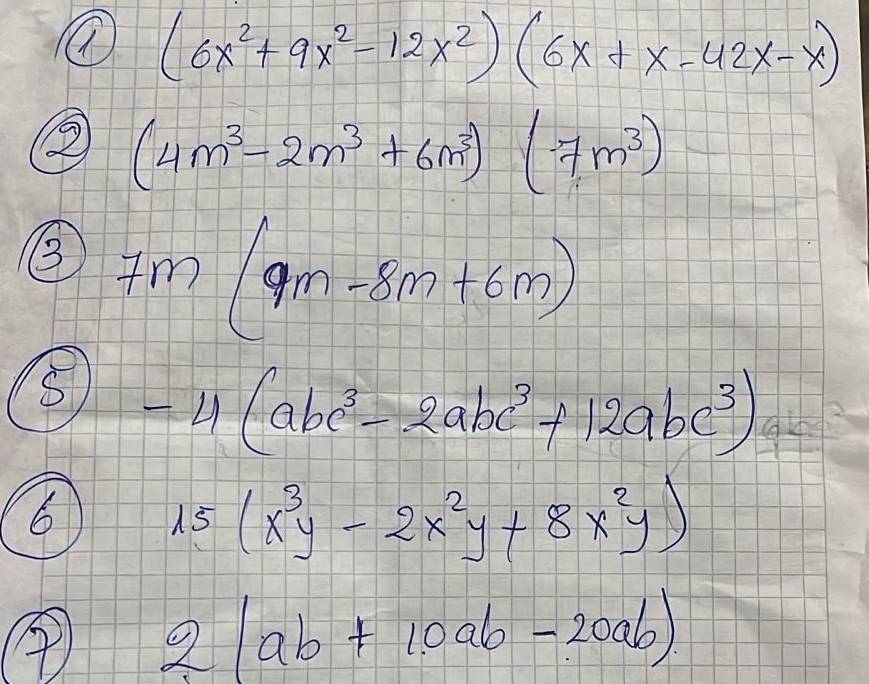 ① (6x² + 9x² - 12x²) (6x + x - 42x - x)
② (4m³ - 2m³ + 6m³) (7m³)
③ 7m (9m - 8m + 6m)
⑤ - 4 (abc³ - 2abc³ + 12abc³)
⑥ 15 (x³y - 2x²y + 8x²y)
⑦ 2 (ab + 10ab - 20ab)